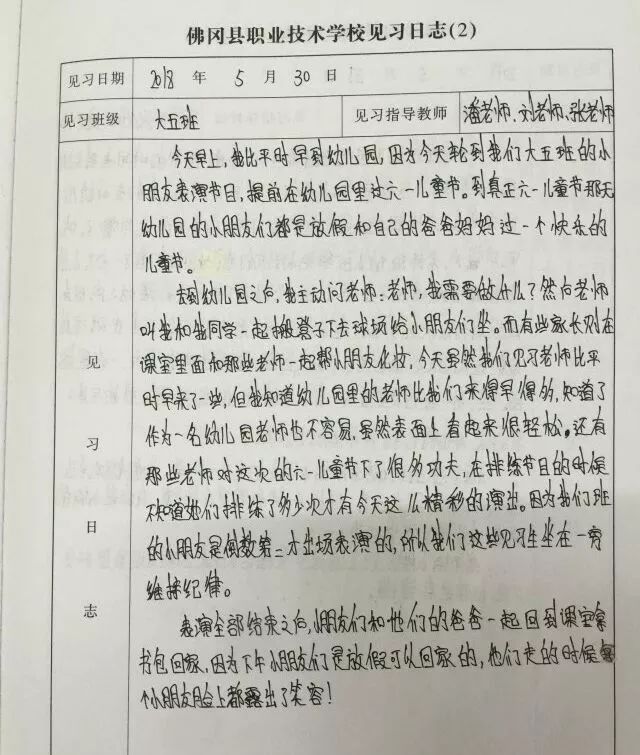 佛冈县职业技术学校见习日志(2)
见习日期 2018 年 5 月 30 日
见习班级 大五班 见习指导教师 潘老师、刘老师、张老师
今天早上,我比平时早到幼儿园,因为今天轮到我们大五班的小
朋友表演节目,提前在幼儿园里过六一儿童节。到真正六一儿童节那天
幼儿园的小朋友们都是放假和自己的爸爸妈妈过一个快乐的
儿童节。
去到幼儿园之后,我主动问老师:老师,我需要做什么?然后老师
叫我和我同学一起搬凳子下去球场给小朋友们坐。而有些家长则在
课室里面和那些老师一起帮小朋友化妆,今天虽然我们见习老师比平
时早来了一些,但我知道幼儿园里的老师比我们来得早得多,知道了
作为一名幼儿园老师也不容易,虽然表面上看起来很轻松。还有
那些老师对这次的六一儿童节下了很多功夫,在排练节目的时候
不知道她们排练了多少次才有今天这么精彩的演出。因为我们班
的小朋友是倒数第二才出场表演的,所以我们这些见习生坐在一旁
维持纪律。
表演全部结束之后,小朋友们和他们的爸爸一起回到课室拿
书包回家,因为下午小朋友们是放假可以回家的,他们走的时候每
个小朋友脸上都露出了笑容!
见
习
日
志